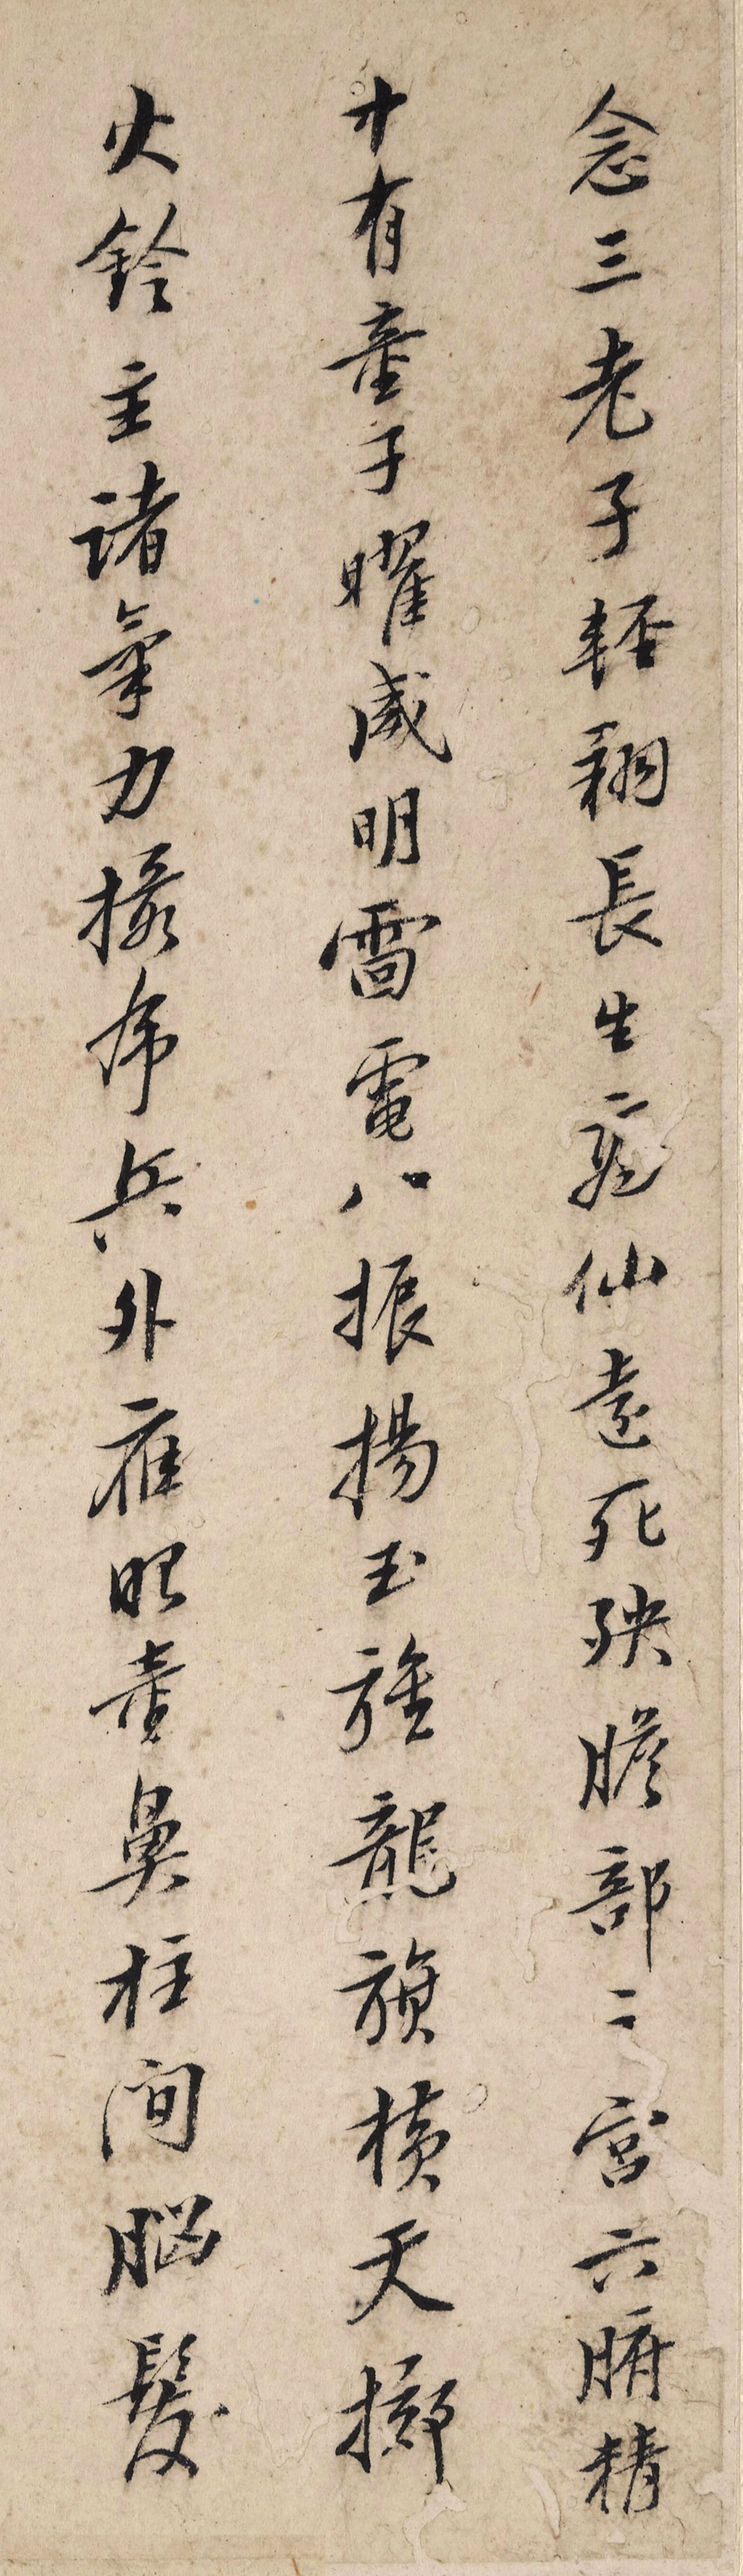 念三老子輕翔長生高仙遠死殃膽部〻宮六腑精
中有童子曜威明雷電八振揚玉旌龍旗橫天擲
火鈴主諸氣力攝虎兵外應眼童鼻柱間腦髮